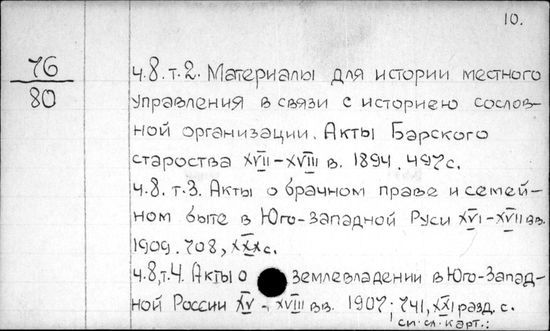 10.
76
80
ч.8.т.2. Материалы для истории местного
управления в связи с историею сослов-
ной организации. Акты Барского
староства XVII-XVIII в. 1894. 497с.
ч.8. т.3. Акты о брачном праве и семей-
ном быте в Юго-Западной Руси XVI-XVII вв.
1909. 708, XXXс.
ч.8,т.4. Акты о землевладении в Юго-Запад-
ной России XV - XVIII вв. 1907; 741, XXI разд. с.
см. сл. карт.: